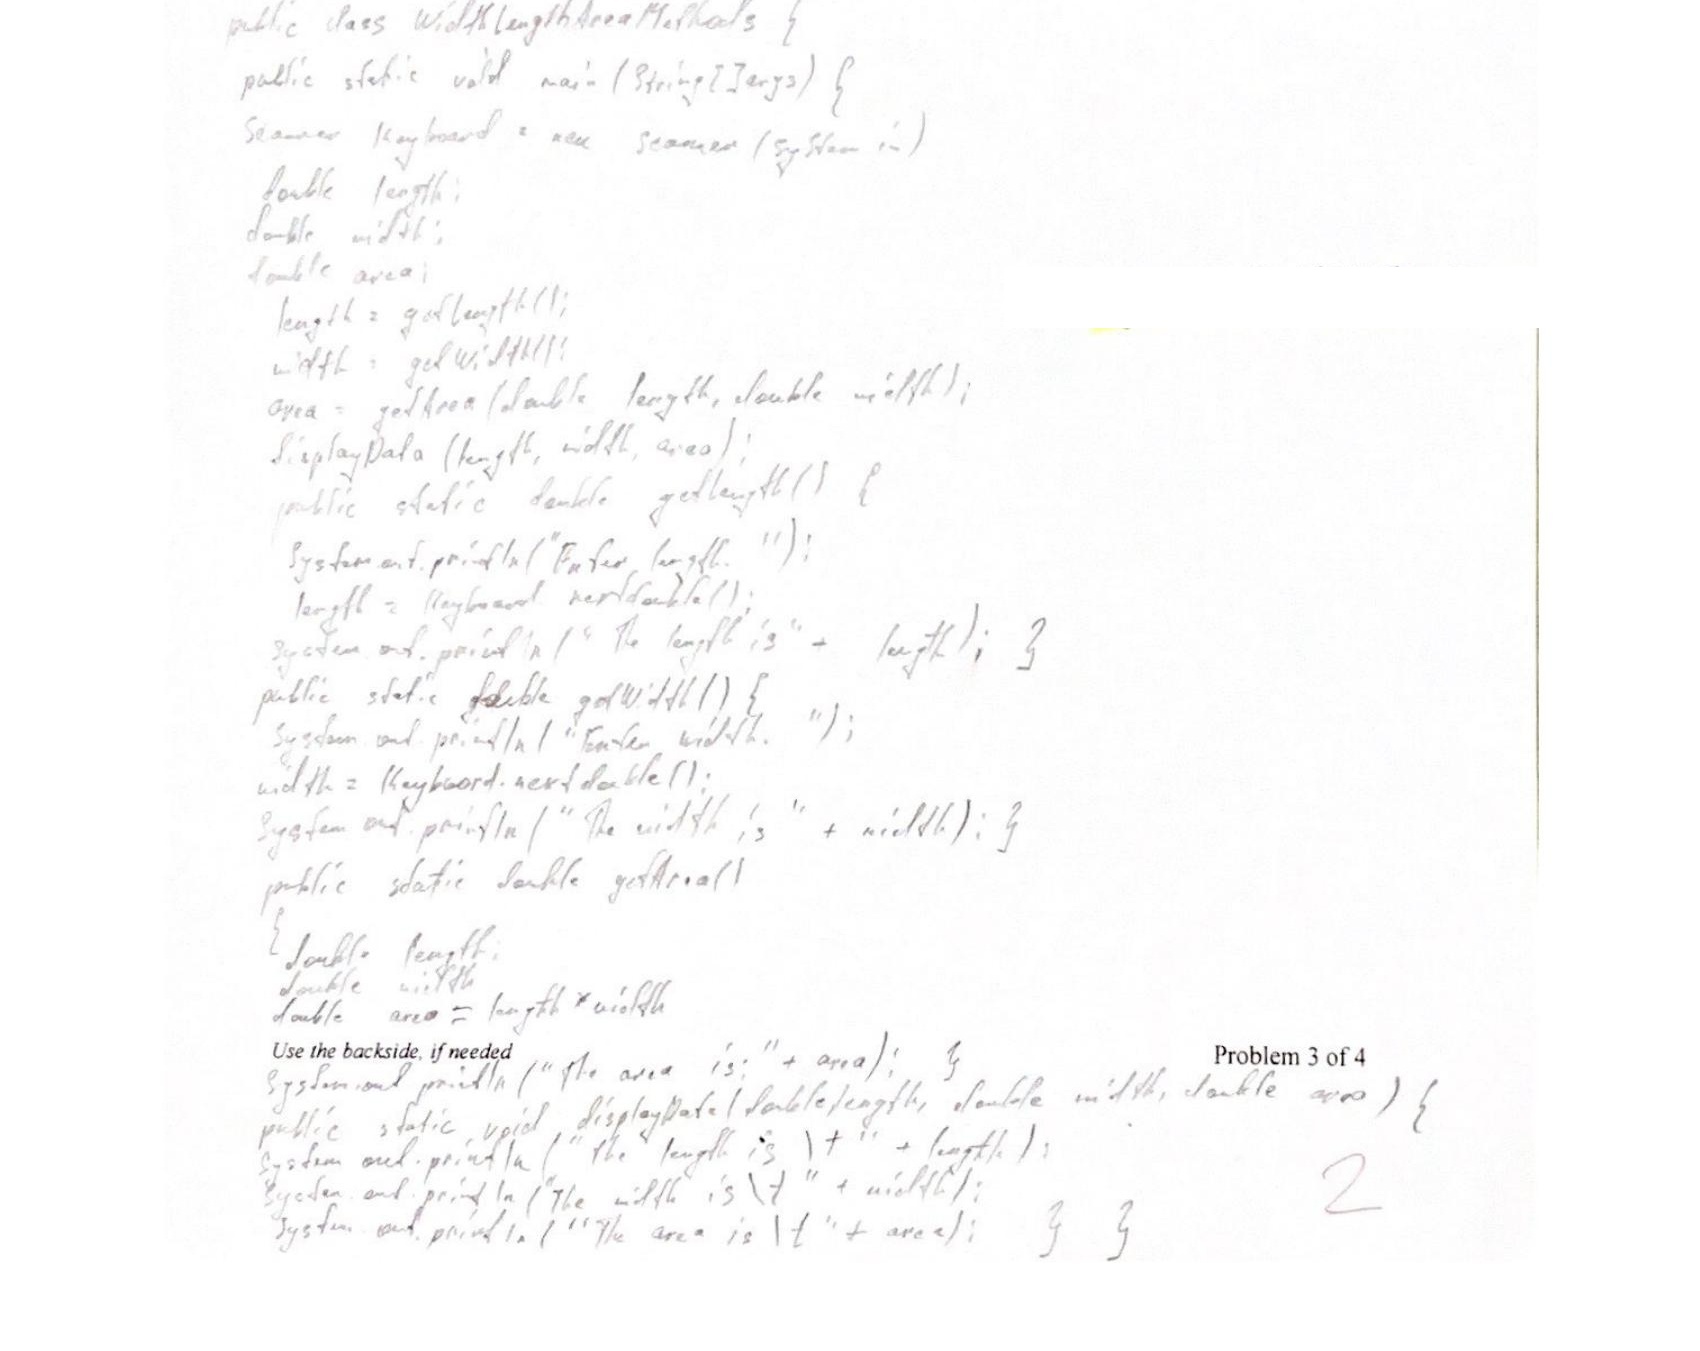 public class WidthLengthAreaMethods {
public static void main (String[] args) {
Scanner Keyboard = new Scanner (System in)
double length;
double width;
double area;
length = getLength();
width = getWidth();
area = getArea (double length, double width);
displayData (length, width, area);
public static double getLength() {
System.out.println("Enter length. ");
length = Keyboard nextdouble();
System.out.println (" The length is" + length); }
public static double getWidth() {
System.out.println ("Enter width. ");
width = Keyboard.nextdouble();
System out.println (" The width is " + width); }
public static double getArea()
{
double length;
double width
double area = length * width
Use the backside, if needed
Problem 3 of 4
System.out println ("The area is: " + area); }
public static void displayData (double length, double width, double area) {
System out.println ("The length is \t " + length);
System.out.println ("The width is \t " + width);
System.out.println ("The area is \t " + area); } }
2